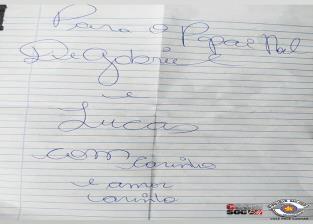 Para o Papai Noel
De Gabriel
e
Lucas
com carinho
e amor
carinho